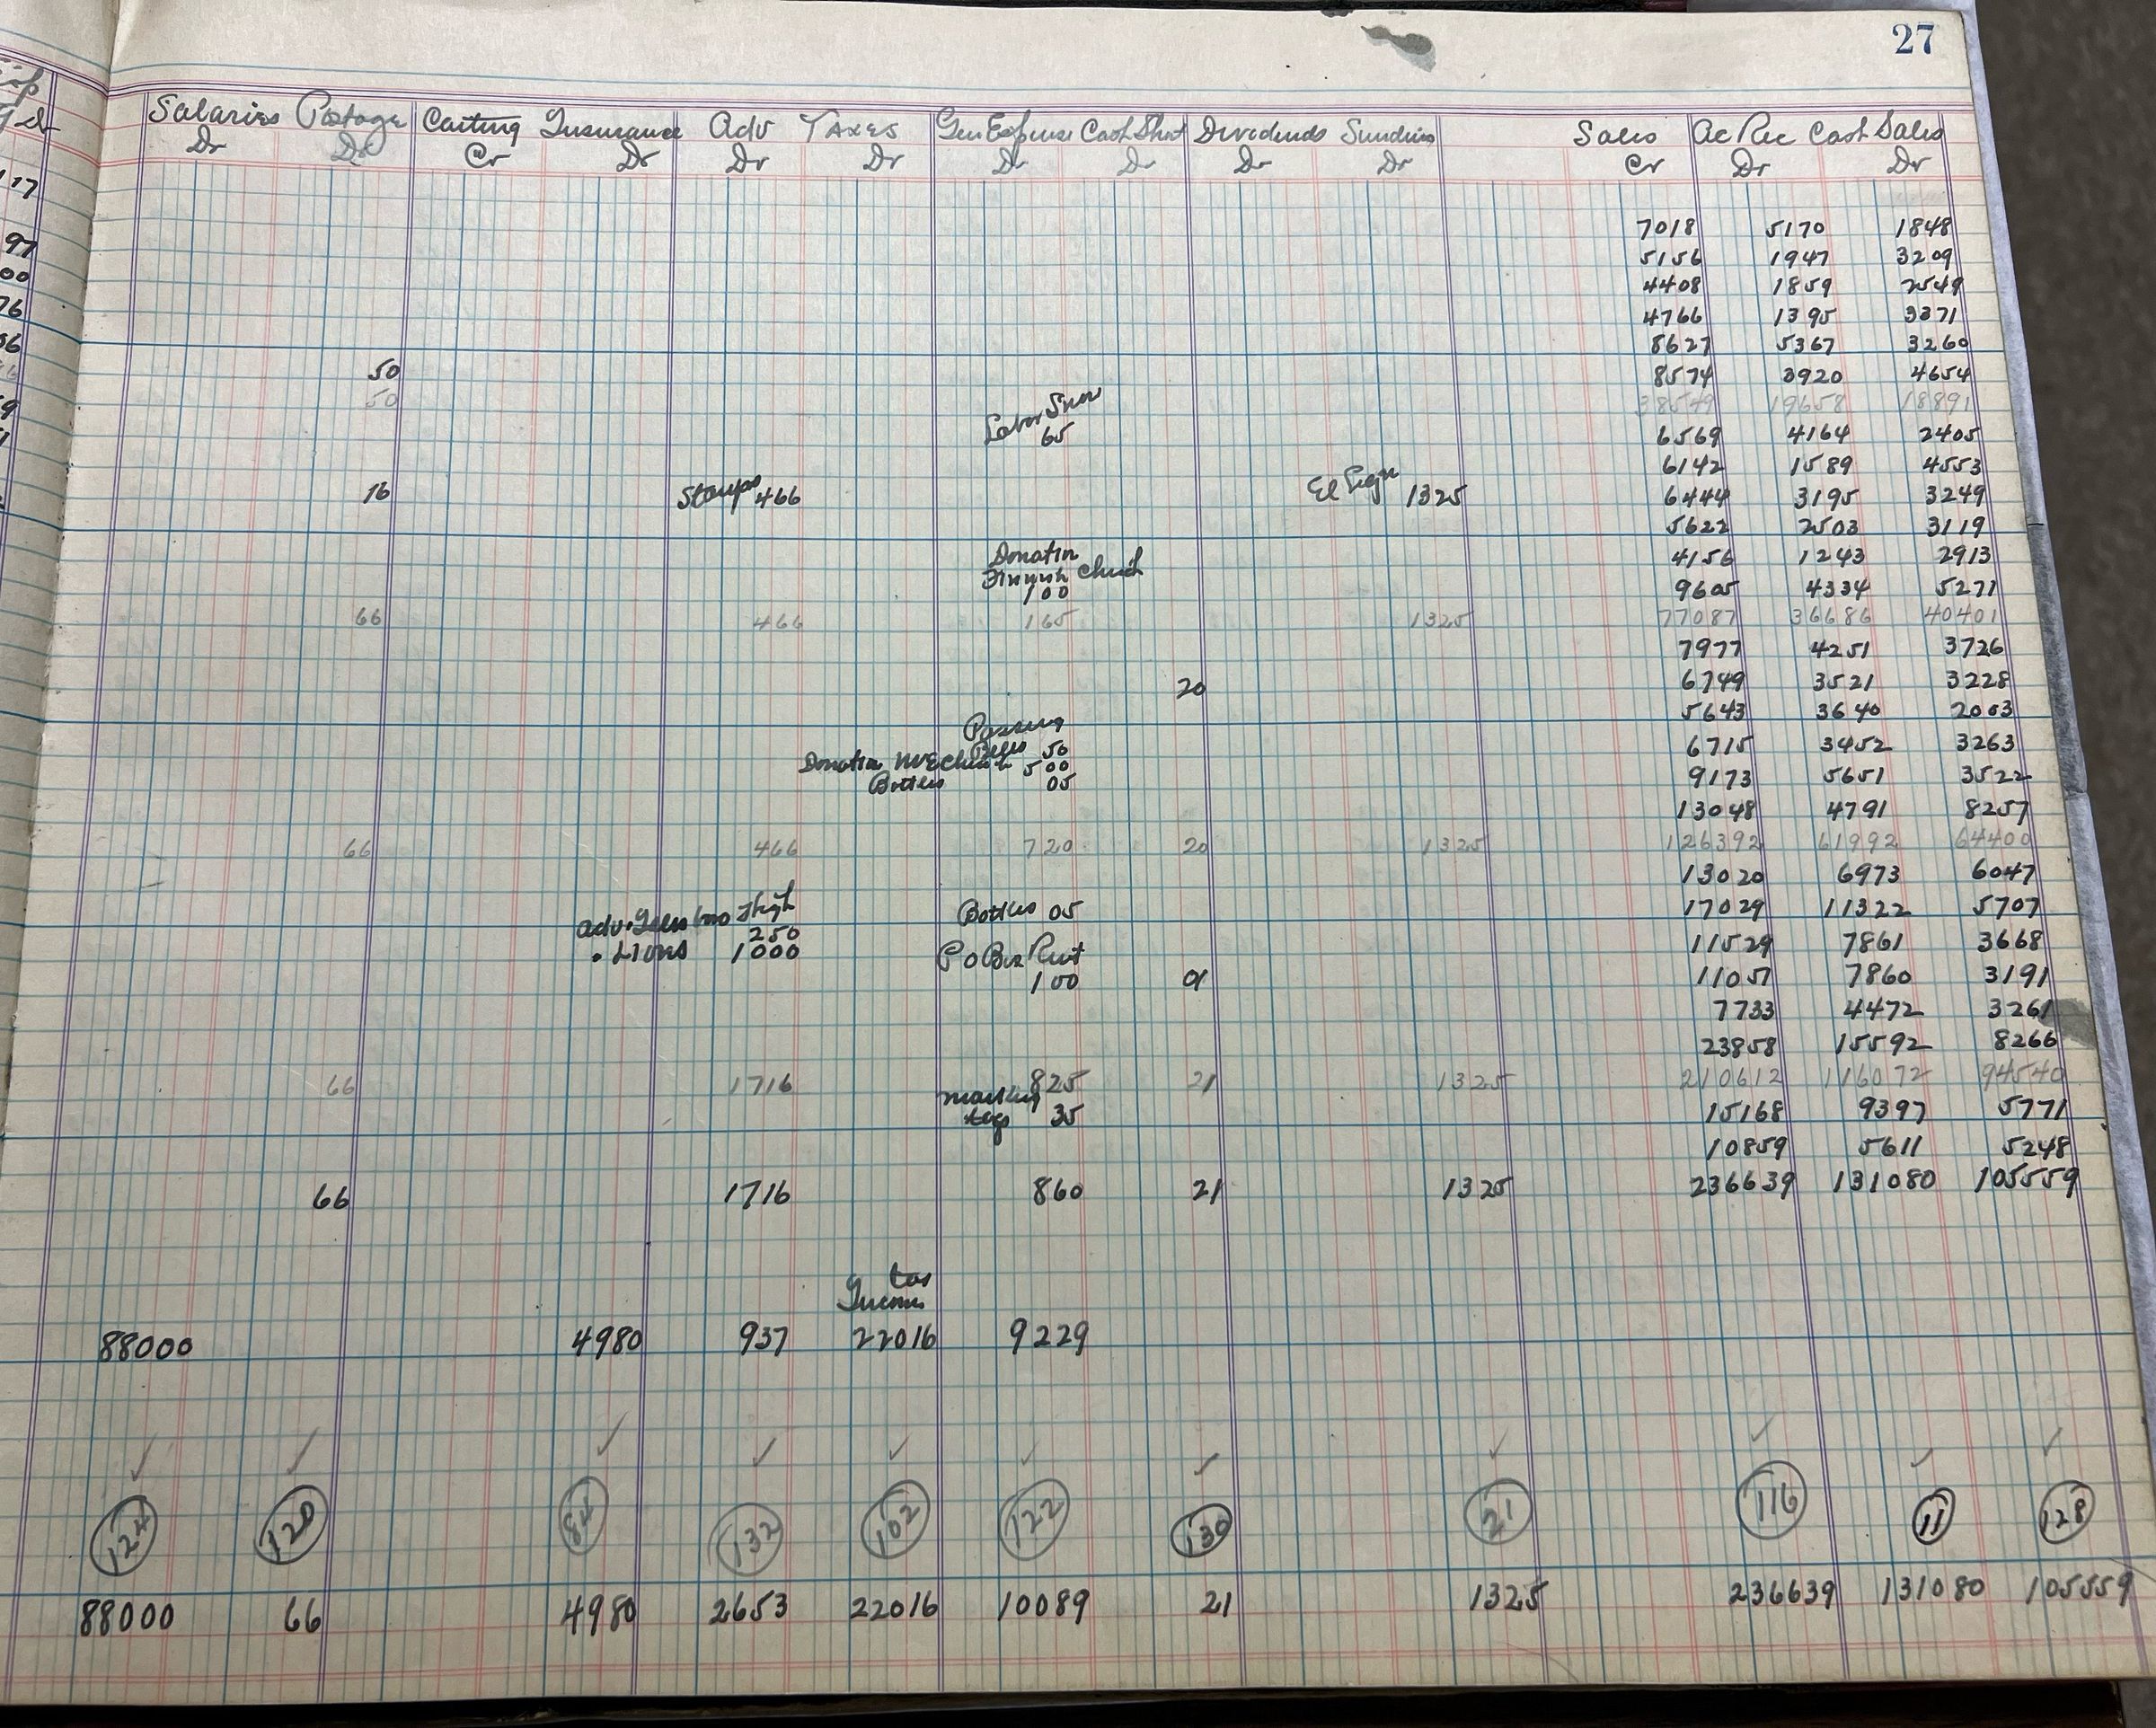 27
Salaries Postage Casting Insurance Adv Taxes Gen Expense Cash Short Dividends Sundries Sales Ac Rec Cash Sales
Dr Dr Cr Dr Dr Dr Dr Dr Dr Dr Cr Dr Dr
17
7018 5170 1848
97 5156 1947 3209
00 4408 1859 2549
76 4766 1395 3371
8627 5367 3260
50 8574 3920 4654
50 38549 19658 18891
Labor Snow
65 6569 4164 2405
6142 1589 4553
16 Stamps 466 El Sign 1325 6444 3195 3249
5622 2503 3119
Donatin 4156 1243 2913
Finnish Church
100 9605 4334 5271
66 466 165 1325 77087 36686 40401
7977 4251 3726
20 6749 3521 3228
5643 3640 2003
50 6715 3452 3263
Donatin ME Church 500 9173 5651 3522
Bottles 05
13048 4791 8257
66 466 720 20 1325 126392 61992 64400
13020 6973 6047
High
Adv. Bottles 05 17029 11322 5707
250
. Lions 1000 PO Box Rent 11529 7861 3668
100 01 11051 7860 3191
7733 4472 3261
23858 15592 8266
66 1716 825 21 1325 210612 116072 94540
Marking
tags 35 15168 9397 5771
10859 5611 5248
66 1716 860 21 1325 236639 131080 105559
tax
Income
88000 4980 937 22016 9229
124 120 84 132 102 122 130 21 116 11 128
88000 66 4980 2653 22016 10089 21 1325 236639 131080 105559